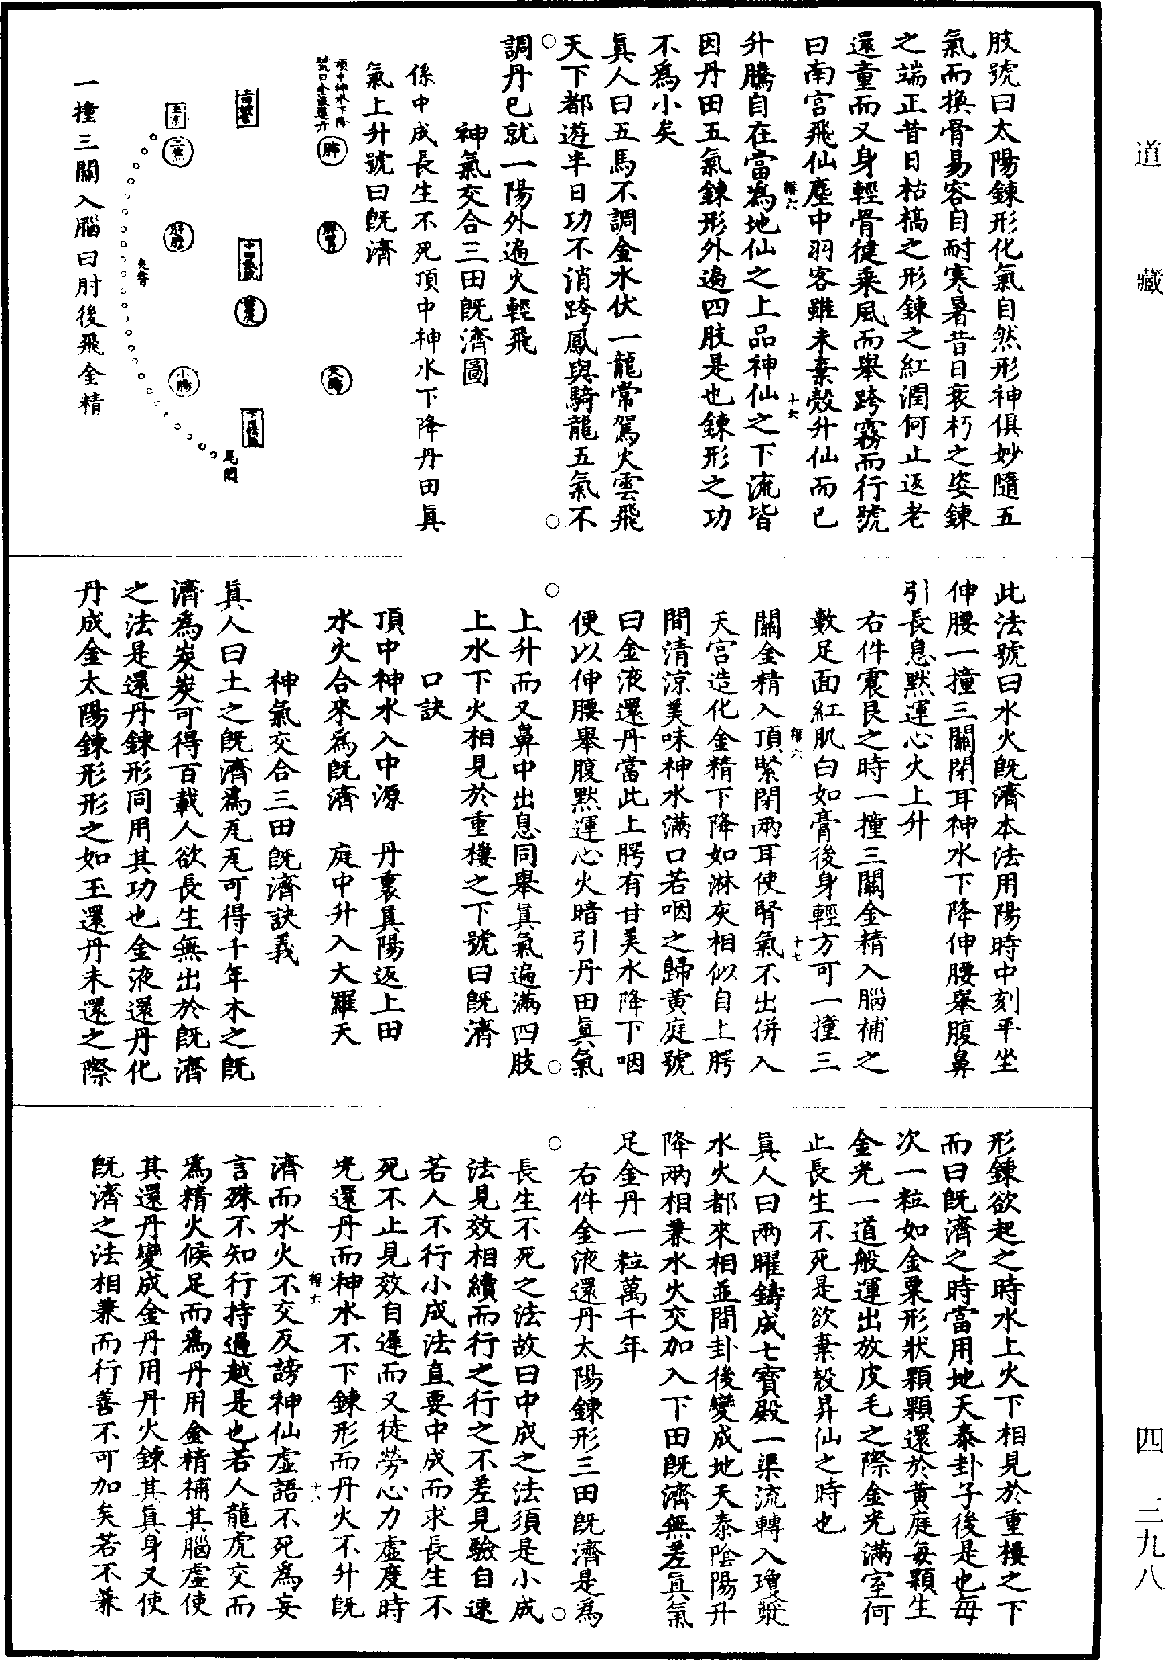 道藏
四 三九八
肢號曰太陽鍊形化氣自然形神俱妙隨五
氣而換骨易容自耐寒暑昔日衰朽之姿鍊
之端正昔日枯槁之形鍊之紅潤何止返老
還童而又身輕骨健乘風而舉跨霧而行號
曰南宮飛仙塵中羽客雖未棄殼升仙而已
升騰自在當為地仙之上品神仙之下流皆
因丹田五氣鍊形外遍四肢是也鍊形之功
不為小矣
真人曰五馬不調金水伏一龍常駕火雲飛
天下都遊半日功不消跨鳳與騎龍五氣不
調丹已就一陽外遍火輕飛
神氣交合三田旣濟圖
係中成長生不死頂中神水下降丹田真
氣上升號曰旣濟
肺
大腸
三焦
小腸
夾脊
尾閭
一撞三關入腦曰肘後飛金精
此法號曰水火旣濟本法用陽時中刻平坐
伸腰一撞三關閉耳神水下降伸腰舉腹鼻
引長息默運心火上升
右件震艮之時一撞三關金精入腦補之
數足面紅肌白如膏後身輕方可一撞三
關金精入頂緊閉兩耳使腎氣不出併入
天宮造化金精下降如淋灰相似自上腭
間清涼美味神水滿口若咽之歸黃庭號
曰金液還丹當此上腭有甘美水降下咽
便以伸腰舉腹默運心火暗引丹田真氣
上升而又鼻中出息同舉真氣遍滿四肢
上水下火相見於重樓之下號曰旣濟
口訣
頂中神水入中源 丹裏真陽返上田
水火合來為旣濟 庭中升入大羅天
神氣交合三田旣濟訣義
真人曰土之旣濟為瓦瓦可得千年木之旣
濟為炭炭可得百載人欲長生無出於旣濟
之法是還丹鍊形同用其功也金液還丹化
丹成金太陽鍊形形之如玉還丹未還之際
形鍊欲起之時水上火下相見於重樓之下
而曰旣濟之時當用地天泰卦子後是也每
次一粒如金粟形狀顆顆還於黃庭每顆生
金光一道般運出放皮毛之際金光滿室何
止長生不死是欲棄殼昇仙之時也
真人曰兩曜鑄成七寶殿一渠流轉入瓊漿
水火都來相並間卦後變成地天泰陰陽升
降兩相兼水火交加入下田旣濟無差真氣
足金丹一粒萬千年
右件金液還丹太陽鍊形三田旣濟是為
長生不死之法故曰中成之法須是小成
法見效相續而行之行之不差見驗自速
若人不行小成法直要中成而求長生不
死不止見效自遲而又徒勞心力虛度時
光還丹而神水不下鍊形而丹火不升旣
濟而水火不交反謗神仙虛語不死為妄
言殊不知行持過越是也若人龍虎交而
為精火候足而為丹用金精補其腦虛使
其還丹變成金丹用丹火鍊其真身又使
旣濟之法相兼而行善不可加矣若不兼